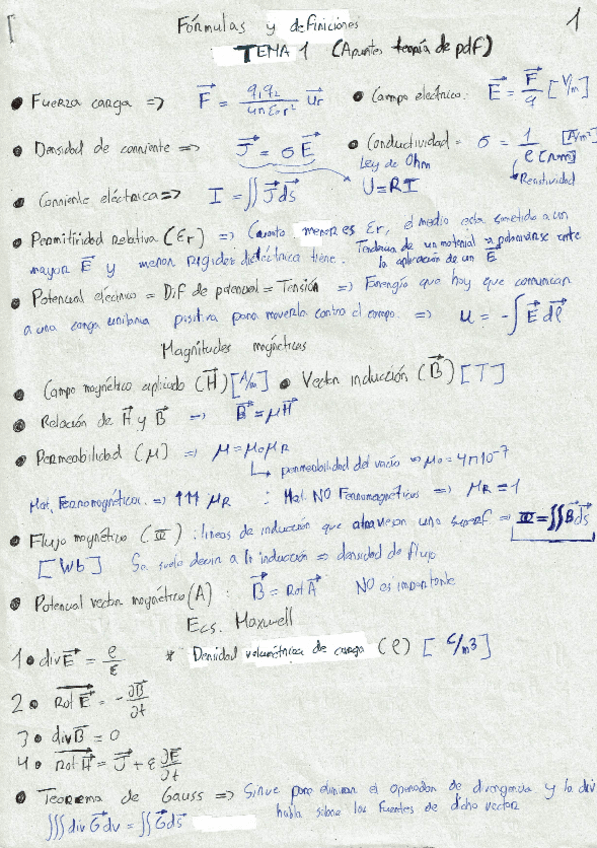 Fórmulas y definiciones 1
TEMA 1 (Apuntes teoría de pdf)
• Fuerza carga => F⃗ = q₁q₂ / 4πε₀r² u⃗r • Campo eléctrico: E⃗ = F⃗/q [V/m]
• Densidad de corriente => J⃗ = σE⃗ • Conductividad = σ = 1/ρ [Ωm] [A/m²]
Ley de Ohm Resistividad
• Corriente eléctrica => I = ∬ J⃗ ds⃗ U = RI
• Permitividad Relativa (εr) => Cuanto menor es εr, el medio esta sometido a un
mayor E⃗ y menor rigidez dieléctrica tiene. Tendencia de un material a polarizarse ante
la aplicación de un E⃗
• Potencial eléctrico = Dif de potencial = Tensión => Energía que hay que comunicar
a una carga unitaria positiva para moverla contra el campo. => u = -∫ E⃗ dl⃗
Magnitudes magnéticas
• Campo magnético aplicado (H⃗) [A/m] • Vector inducción (B⃗) [T]
• Relación de H⃗ y B⃗ => B⃗ = μH⃗
• Permeabilidad (μ) => μ = μ₀μR
↳ permeabilidad del vacío => μ₀ = 4π10⁻⁷
Mat. Ferromagnéticos => ↑↑↑ μR : Mat. NO Ferromagnéticos => μR = 1
• Flujo magnético (Φ) : lineas de inducción que atraviesan una superf => Φ = ∬ B⃗ ds⃗
[Wb] Se suele decir a la inducción => densidad de flujo
• Potencial vector magnético (A) : B⃗ = Rot A⃗ NO es importante
Ecs. Maxwell
1• div E⃗ = ρ/ε * Densidad volumétrica de carga (ρ) [C/m3]
2• Rot E⃗ = -∂B⃗/∂t
3• div B⃗ = 0
4• Rot H⃗ = J⃗ + ε ∂E⃗/∂t
• Teorema de Gauss => Sirve para eliminar el operador de divergencia y la div
habla sobre las fuentes de dicho vector
∭ div G⃗ dv = ∬ G⃗ ds⃗